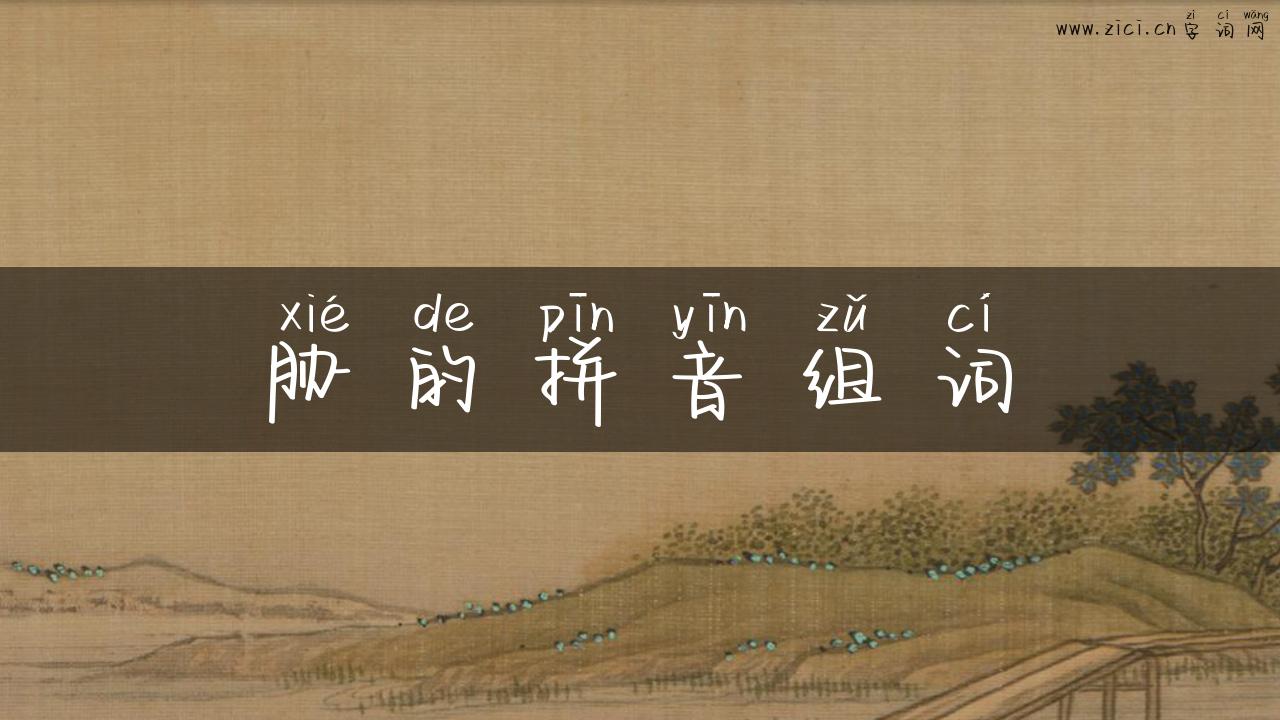 zì cí wǎng
www.zici.cn字词网
xié de pīn yīn zǔ cí
胁的拼音组词